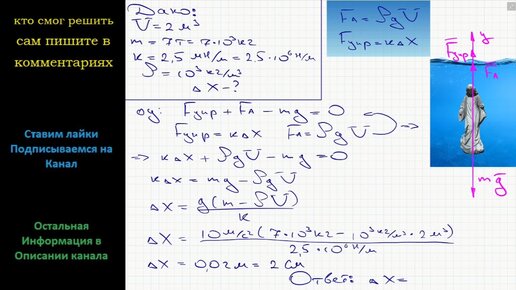 кто смог решить
сам пишите в
комментариях
Ставим лайки
Подписываемся на
Канал
Остальная
Информация в
Описании канала
Дано:
V = 2 м³
m = 7т = 7·10³ кг
k = 2,5 МН/м = 2,5·10⁶ Н/м
ρ = 10³ кг/м³
Δx - ?
F_A = ρgV
F_упр = kΔx
oy: F_упр + F_A - mg = 0
F_упр = kΔx F_A = ρgV ⇒
⇒ kΔx + ρgV - mg = 0
kΔx = mg - ρgV
Δx = g(m - ρV) / k
Δx = 10 м/с² (7·10³ кг - 10³ кг/м³ · 2 м³) / 2,5·10⁶ Н/м
Δx = 0,02 м = 2 см
Ответ: Δx =
y
F_упр
F_A
mg